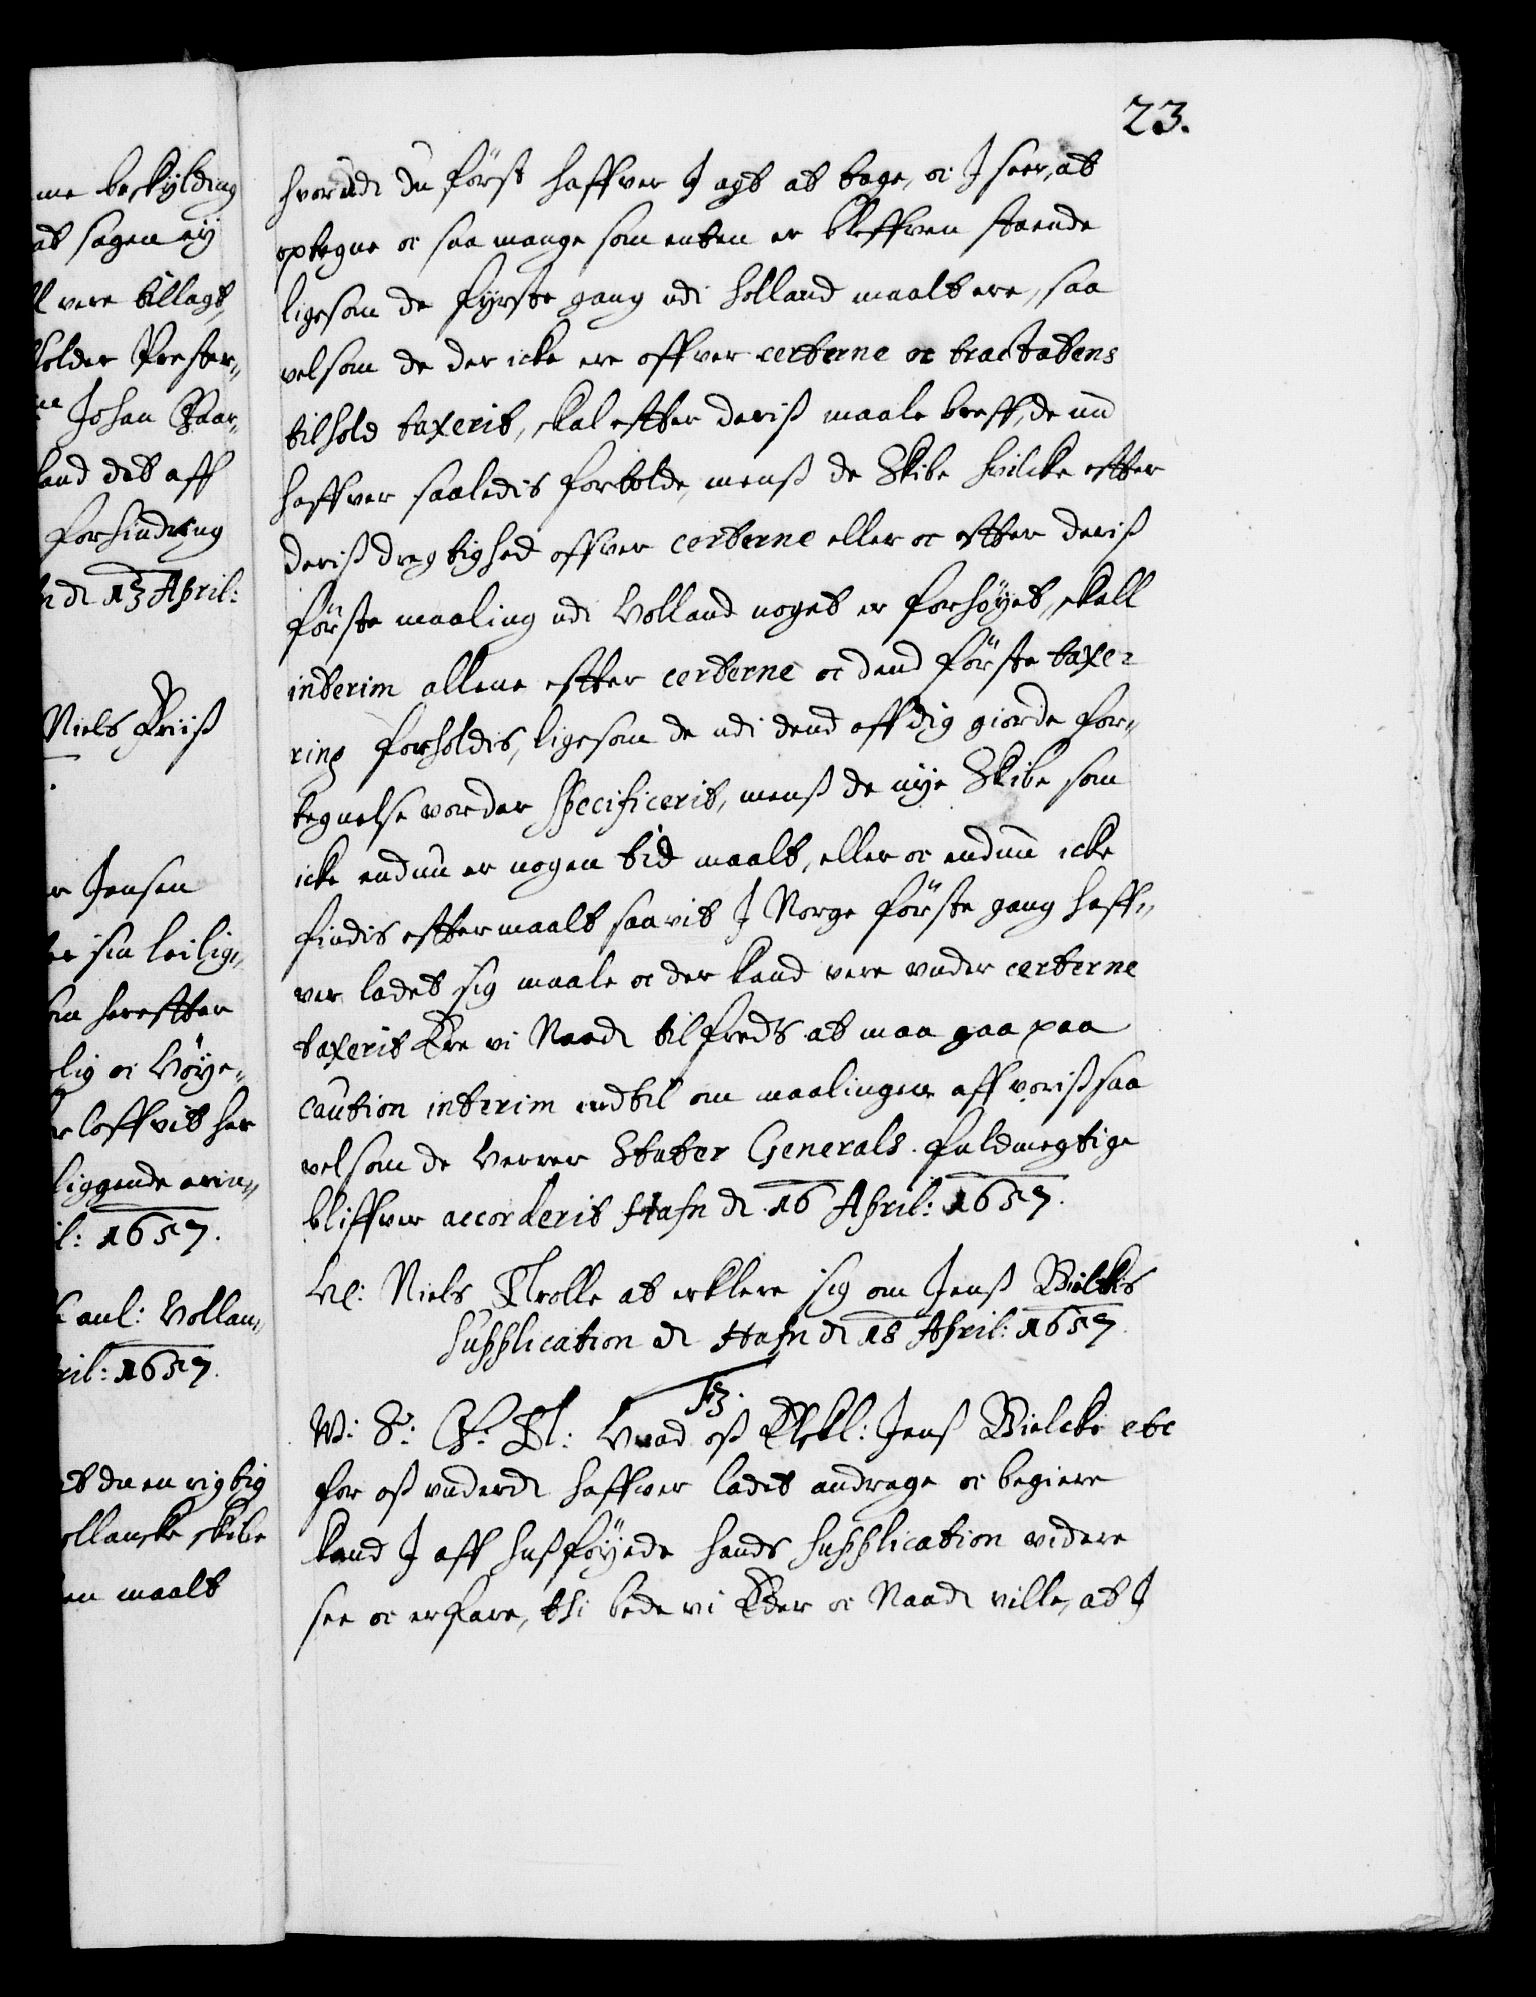 23.
me beskylding
at sagen ej
l vere tillagt,
holder Prester-
Johan Gaar-
land det aff
forhindring
n dn 13 April:
Niels Friiss
r Jensen
er sin leilig-
om herefter
olig oc Høye-
r loffvit her
liggende ærin-
il: 1657.
anl: Hollan-
ril: 1657.
et du en rigtig
ollanske skibe
en maalt
hvorudi du först haffver J agt at tage, oc J seer, at
optegne oc saa mange som enten er bleffven staaende
ligesom de fyrste gang udi Holland maalt ere, saa
velsom de der icke ere offver certerne oc tractatens
tilhold taxerit, skal effter deriss maale breff, de nu
haffver saaledis forholde, menss de Skibe hvilcke effter
deriss dregtighed offver certerne eller oc effter deriss
förste maaling udi Holland noget er forhøyet, skall
interim allene effter certerne oc dend förste taxe-
ring forholdis, ligesom de udi dend aff dig giorde for-
tegnelse vorder specificerit, menss de nye Skibe som
icke endnu er nogen tid maalt, eller oc endnu icke
findis effter maalt saavit J Norge förste gang haff-
ver ladet sig maale oc der kand vere under certerne
taxerit Ere vi Naadn tilfreds at maa gaa paa
caution interim indtil om maalingen aff voriss saa
velsom de Herrer Stater Generals fuldmegtige
bliffver accorderit Hafn dn 16 April: 1657.
Hl: Niels Trolle at erklere sig om Jenss Bielkis
Supplication dn Hafn dn 18 April: 1657.
F3.
W: S: G: T: Hvad oss Elskl: Jenss Bielcke etc
for oss underdn haffver ladet andrage oc begiere
kand J aff hossföyede hands Supplication videre
see oc erfare, thi bede vi Eder oc Naadn ville, at J